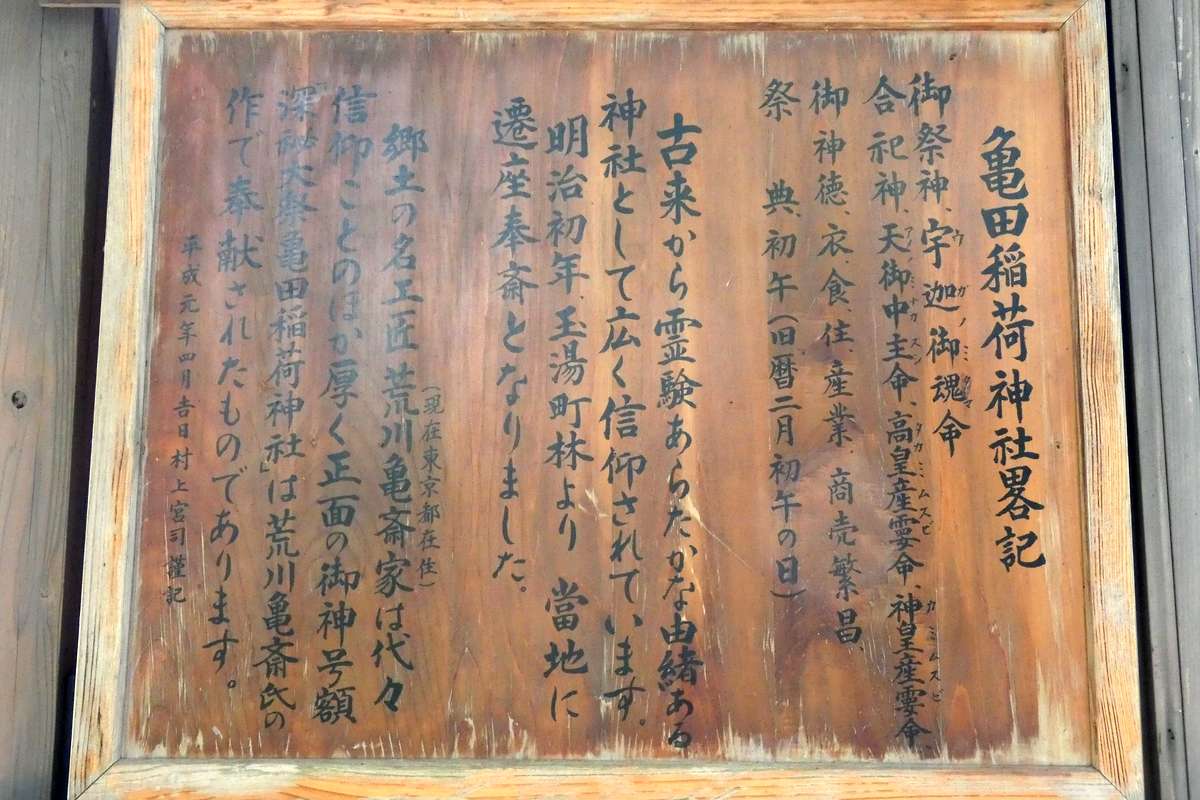 亀田稲荷神社畧記
御祭神、宇迦御魂命
合祀神、天御中主命、高皇産霊命、神皇産霊命、
御神徳、衣、食、住、産業、商売繁昌、
祭典、初午(旧暦二月初午の日)
古来から霊験あらたかな由緒ある
神社として広く信仰されています。
明治初年、玉湯町林より當地に
遷座奉斎となりました。
(現在東京都在住)
郷土の名工匠荒川亀斎家は代々
信仰ことのほか厚く正面の御神号額
深秘大祭亀田稲荷神社」は荒川亀斎氏の
作で奉献されたものであります。
平成元年四月吉日村上宮司謹記